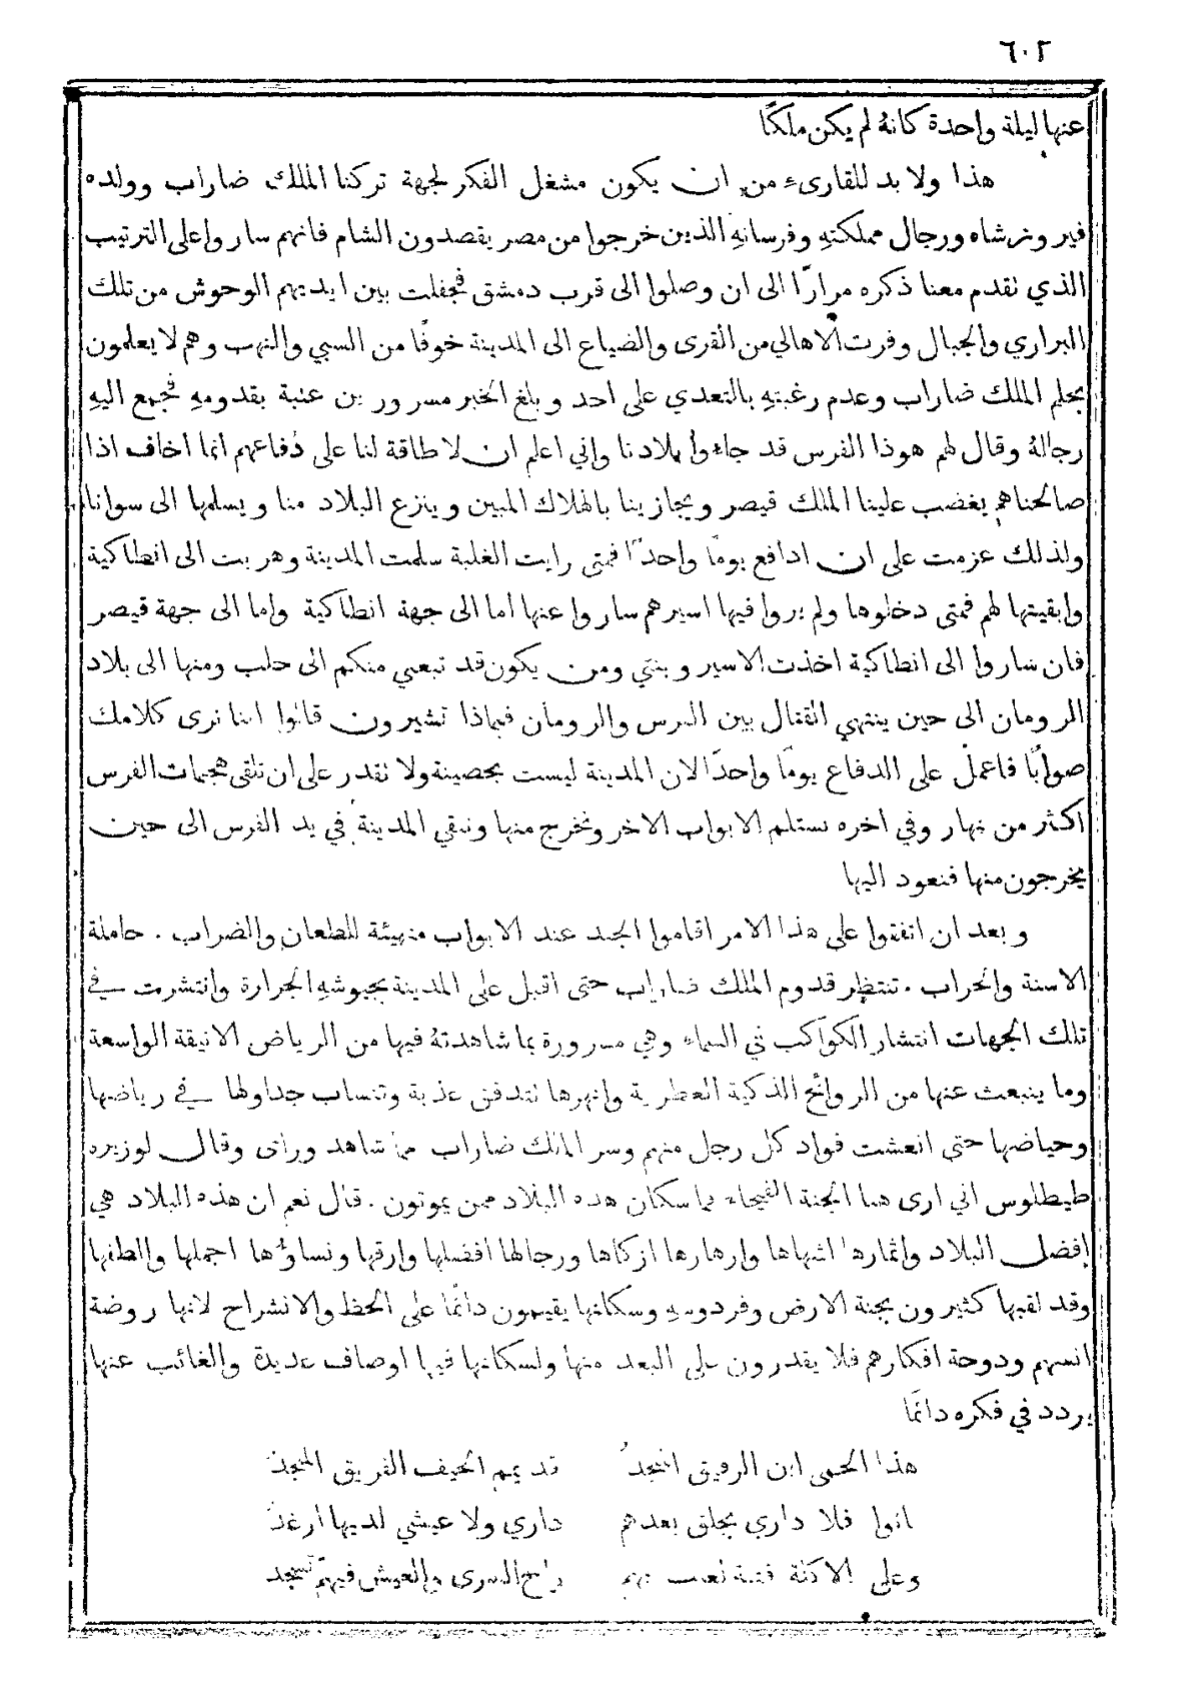 ٦٠٢
عنها ليلة واحدة كانهُ لم يكن ملكًا
هذا ولا بد للقارىء من ان يكون مشغل الفكر لجهة تركنا الملك ضاراب وولده
فيروزشاه ورجال مملكتهِ وفرسانهِ الذين خرجوا من مصر يقصدون الشام فانهم ساروا على الترتيب
الذي تقدم معنا ذكره مرارًا الى ان وصلوا الى قرب دمشق فجفلت بين ايديهم الوحوش من تلك
البراري والجبال وفرت الاهالي من القرى والضياع الى المدينة خوفًا من السبي والنهب وهم لا يعلمون
بحلم الملك ضاراب وعدم رغبتهِ بالتعدي على احد وبلغ الخبر مسرور بن عتبة بقدومهِ فجمع اليهِ
رجالهُ وقال لهم هوذا الفرس قد جاءوا بلادنا واني اعلم ان لا طاقة لنا على دفاعهم انما اخاف اذا
صالحناهم يغضب علينا الملك قيصر ويجازينا بالهلاك المبين وينزع البلاد منا ويسلمها الى سوانا
ولذلك عزمت على ان ادافع يومًا واحدًا فمتى رايت الغلبة سلمت المدينة وهربت الى انطاكية
وابقيتها لهم فمتى دخلوها ولم يروا فيها اسيرهم ساروا عنها اما الى جهة انطاكية واما الى جهة قيصر
فان ساروا الى انطاكية اخذت الاسير وبنتي ومن يكون قد تبعني منكم الى حلب ومنها الى بلاد
الرومان الى حين ينتهي القتال بين الفرس والرومان فبماذا تشيرون قالوا اننا نرى كلامك
صوابًا فاعمل على الدفاع يومًا واحدًا لان المدينة ليست بحصينة ولا نقدر على ان تلقى هجمات الفرس
اكثر من نهار وفي اخره نستلم الابواب الاخر ونخرج منها ونبقي المدينة في يد الفرس الى حين
يخرجون منها فنعود اليها
وبعد ان اتفقوا على هذا الامر اقاموا الجند عند الابواب متهيئة للطعان والضراب . حاملة
الاسنة والحراب . تنتظر قدوم الملك ضاراب حتى اقبل على المدينة بجيوشهِ الجرارة وانتشرت في
تلك الجهات انتشار الكواكب في السماء وهي مسرورة بما شاهدتهُ فيها من الرياض الانيقة الواسعة
وما ينبعث عنها من الروائح الذكية العطرية وانهرها تتدفق عذبة وتنساب جداولها في رياضها
وحياضها حتى انعشت فواد كل رجل منهم وسر الملك ضاراب مما شاهد وراى وقال لوزيره
طيطلوس اني ارى هنا الجنة الفيحاء فما سكان هذه البلاد ممن يموتون . قال نعم ان هذه البلاد هي
افضل البلاد واثمارها اشهاها وازهارها ازكاها ورجالها افضلها وارقها ونساؤها اجملها والطفها
وقد لقبها كثيرون بجنة الارض وفردوسهِ وسكانها يقيمون دائمًا على الحظ والانشراح لانها روضة
انسهم ودوحة افكارهم فلا يقدرون على البعد منها ولسكانها فيها اوصاف عديدة والغائب عنها
يردد في فكره دائمًا
هذا الحمى اين الرفيق المنجدُ قد يمم الخيف الفريق المنجدُ
بانوا فلا داري بجلق بعدهم داري ولا عيشي لديها ارغدُ
وعلى الاكلة فتية لعبت بهم راح السرى والعيش فيهم تسجد